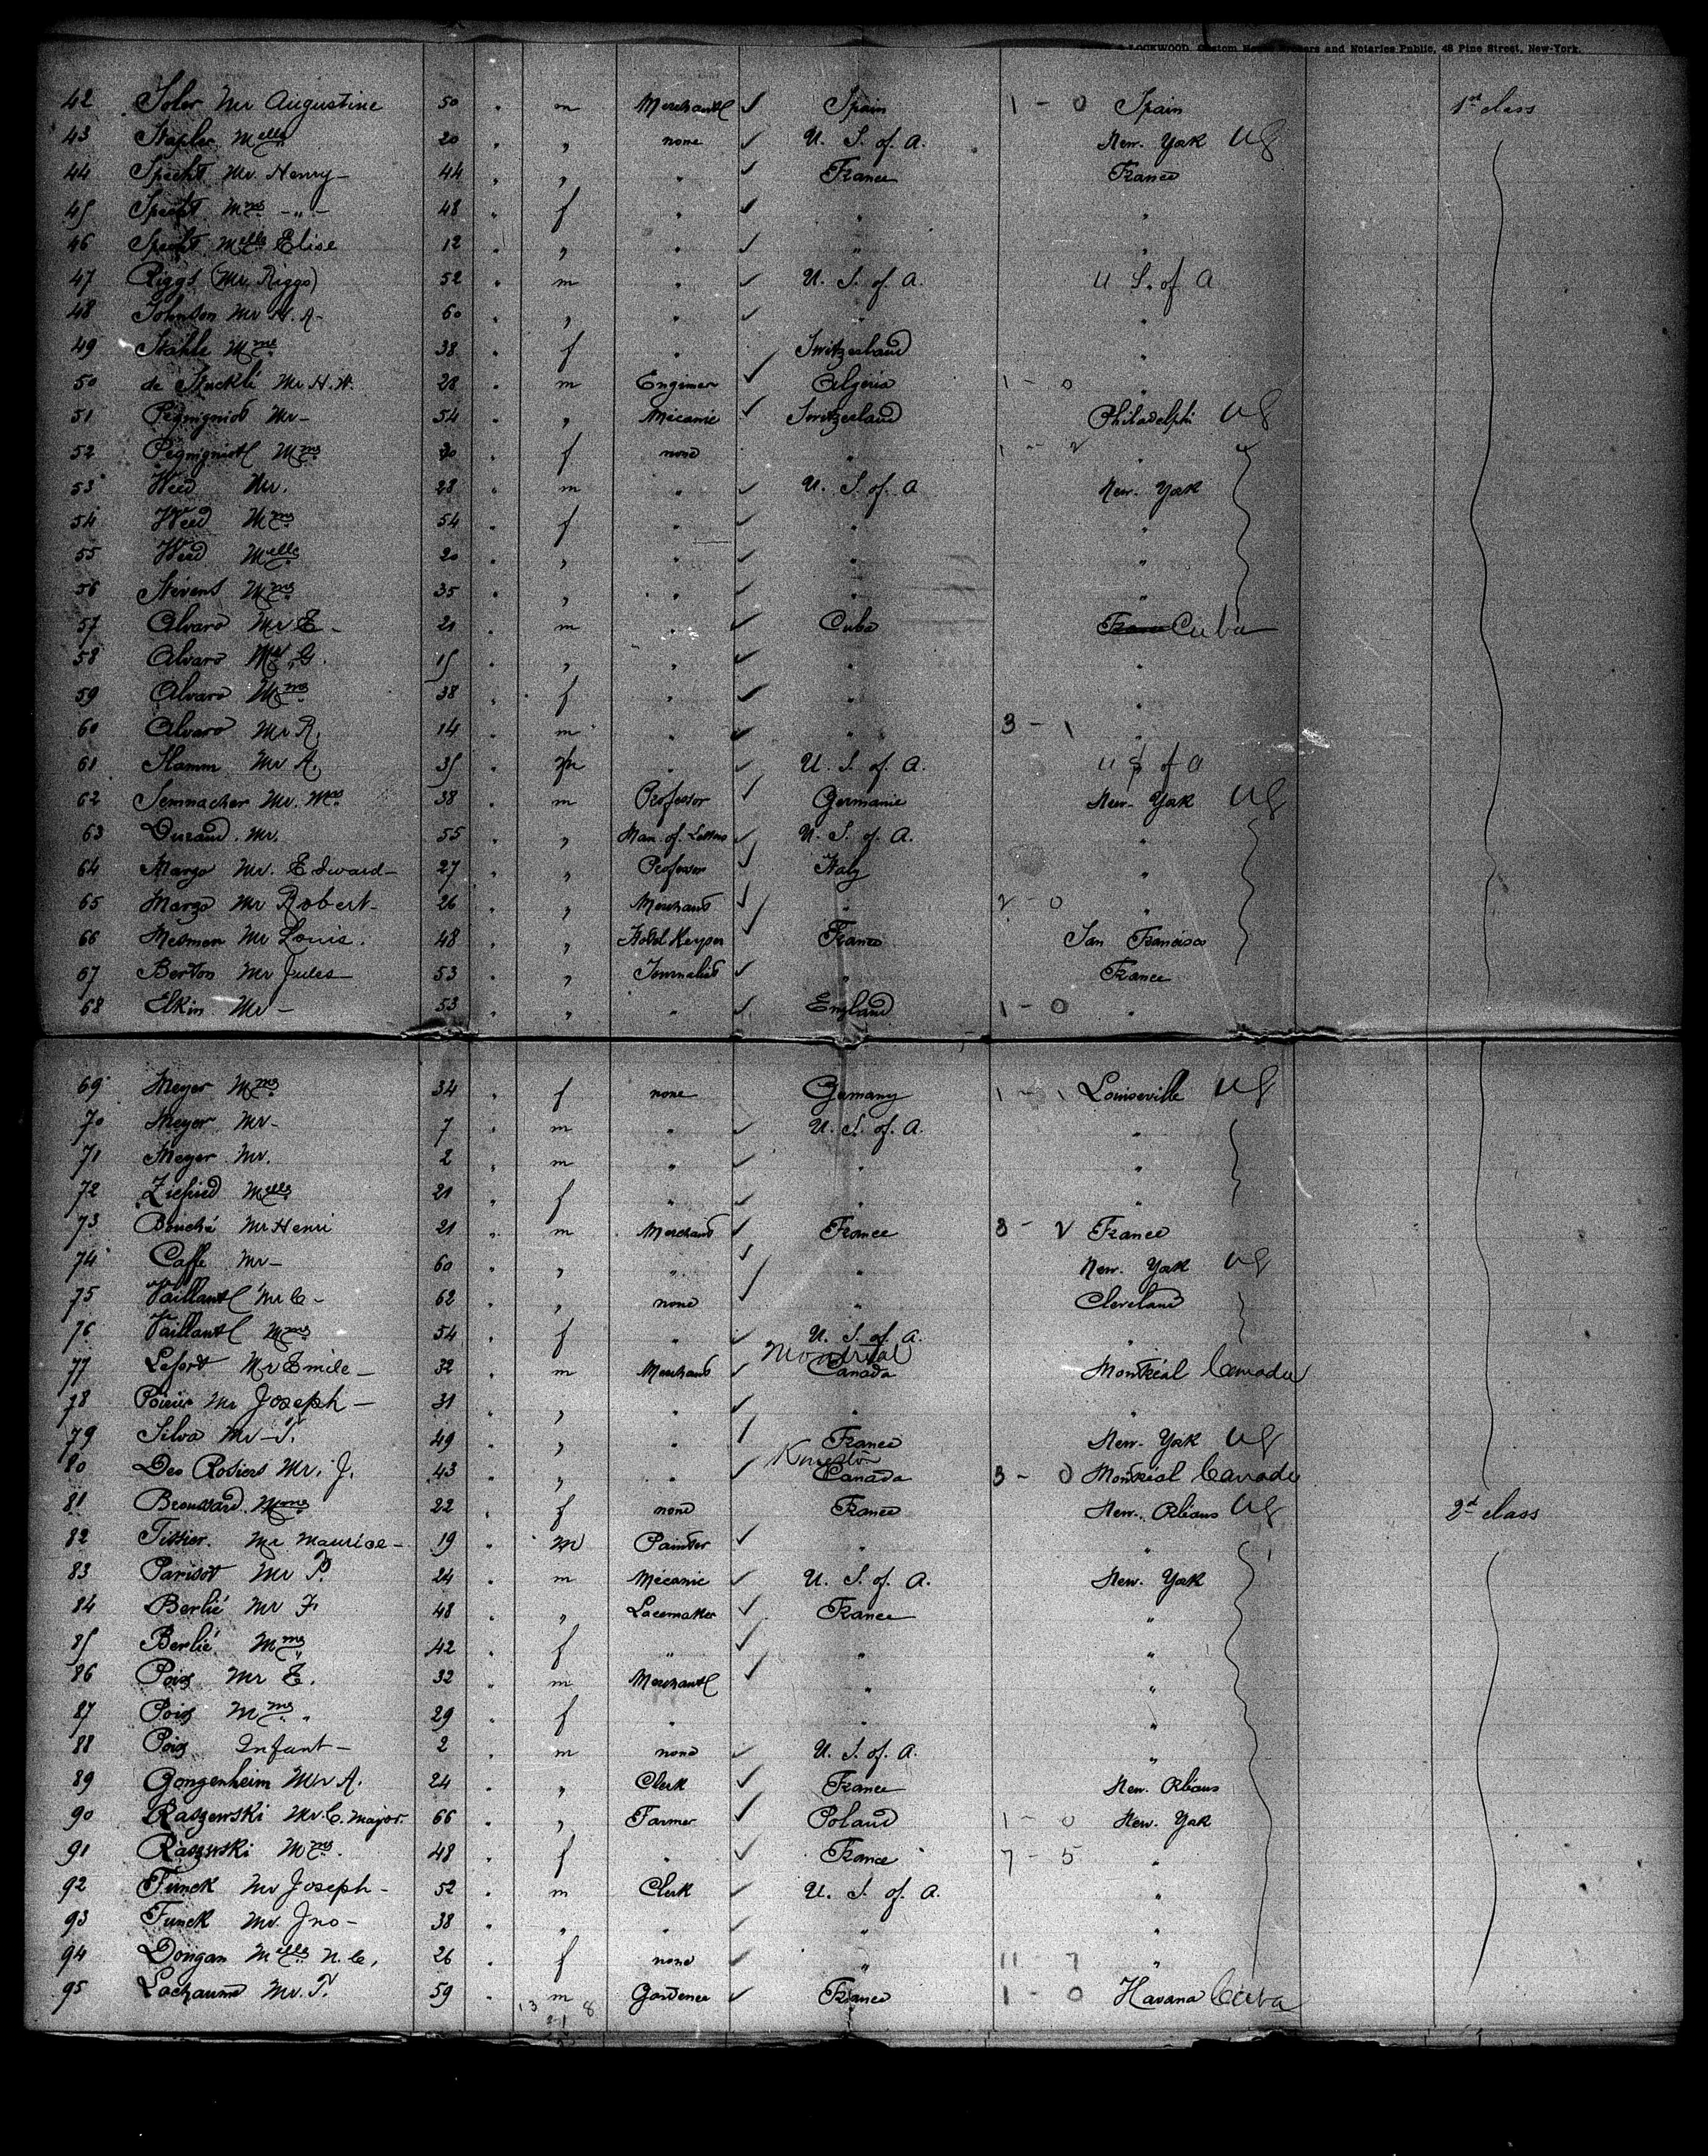 LOCKWOOD, Custom House Brokers and Notaries Public, 48 Pine Street, New-York.
42 Soler Mr Augustine 50 " m Merchant ✓ Spain 1 - 0 Spain 1st class
43 Stapler Melle 20 " " none ✓ U. S. of A. New. York US
44 Specht Mr. Henry - 44 " " " ✓ France France
45 Specht Mme - " - 48 " f " ✓ " "
46 Specht Melle Elise 12 " " " ✓ " "
47 Riggs (Mr. Riggs) 52 " m " ✓ U. S. of A. U S. of A
48 Johnson Mr H. A - 60 " " " ✓ " "
49 Stahle Mme 38 " f " Switzerland "
50 de Stucklé Mr. H. W. 28 " m Engineer ✓ Algeria 1 - 0 "
51 Pegnigniot Mr - 54 " " Mecanic ✓ Switzerland Philadelphi US
52 Pegnigniot Mme 30 " f none " 1 - 2 "
53 Weed Mr. 28 " m " ✓ U. S. of A New. York
54 Weed Mme 54 " f " ✓ " "
55 Weed Melle 20 " " " ✓ " "
56 Stevens Mme 35 " " " ✓ " "
57 Alvaro Mr E - 21 " m " ✓ Cuba France Cuba
58 Alvaro Mr G. 15 " " " ✓ " "
59 Alvaro Mme 38 " f " ✓ " "
60 Alvaro Mr R. 14 " m " ✓ " 3 - 1 "
61 Stamm Mr A. 35 " m " ✓ U. S. of A. U S of A
62 Semnacher Mr. 38 " m Professor ✓ Germanie New. York US
63 Durand. Mr. 55 " " Man. of. Letters ✓ U. S. of A. "
64 Margo Mr. Edward - 27 " " Professor ✓ Italy "
65 Margo Mr Robert - 26 " " Merchant ✓ " 2 - 0 "
66 Mesmer Mr Louis. 48 " " Hotel Keyper ✓ France San Francisco
67 Berton Mr Jules 53 " " Journalist ✓ " France
68 Elkin Mr - 53 " " " ✓ England 1 - 0 "
69 Meyer Mme 34 " f none Germany 1 - 1 Louiseville US
70 Meyer Mr - 7 " m " ✓ U. S. of A. "
71 Meyer Mr. 2 " m " ✓ " "
72 Melle 21 " f " ✓ " "
73 Bouché Mr Henri 21 " m Merchant ✓ France 3 - 2 France
74 Caffe Mr - 60 " " " ✓ " New. York US
75 Vaillant Mr C - 62 " " none ✓ " Cleveland
76 Vaillant Mme 54 " f " ✓ U. S. of A. "
77 Lefort Mr Emile - 32 " m Merchant ✓ Montreal Canada Montréal Canada
78 Poirier Mr Joseph - 31 " " " ✓ " "
79 Silva Mr - T. 49 " " " ✓ France New. York US
80 Des Rosiers Mr. J. 43 " " " ✓ Canada 3 - 0 Montréal Canada
81 Broussard Mme 22 " f none France New. Orléans US 2d class
82 Tissier. Mr Maurice - 19 " m Painter ✓ " "
83 Parisot Mr P. 24 " m Mécanic ✓ U. S. of A. New. York
84 Berlié Mr F. 48 " " Lacemaker ✓ France "
85 Berlié Mme 42 " f " ✓ " "
86 Poix Mr E. 32 " m Merchant ✓ " "
87 Poix Mme " 29 " f " " "
88 Poix Infant - 2 " m none ✓ U. S. of A. "
89 Gongenheim Mr A. 24 " " Clerk ✓ France New. Orléans
90 Raszewski Mr. C. Major. 66 " " Farmer ✓ Poland 1 - 0 New. York
91 Raszewski Mme. 48 " f " ✓ France 7 - 5 "
92 Funck Mr Joseph - 52 " m Clerk ✓ U. S. of A. "
93 Funck Mr. Jno - 38 " " " ✓ " "
94 Dongan Melle N. C. 26 " f none ✓ " 11 - 7 "
95 Lachaume Mr. T. 59 " m Gardener ✓ France 1 - 0 Havana Cuba
13 8
21